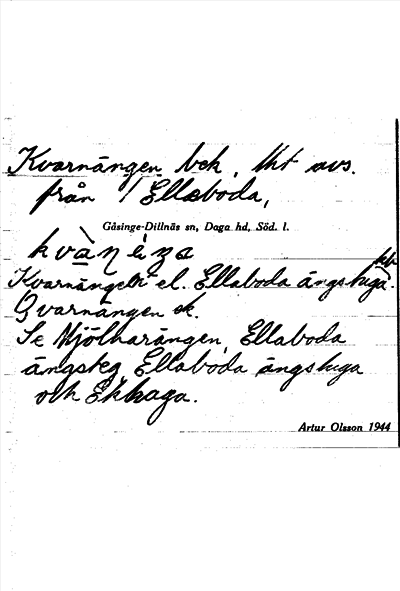 Kvarnängen, bek, lht avs.
från 1 Ellaboda,
Gåsinge-Dillnäs sn, Daga hd, Söd. l.
Kvarnängen el. Ellaboda ängshaga.
Qvarnängen ek.
Se Mjölnarängen, Ellaboda
ängsteg Ellaboda ängshaga
och Ekhaga.
Artur Olsson 1944